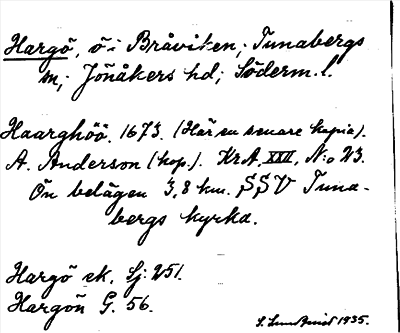 Hargö, ö i Bråviken; Tunabergs
sn; Jönåkers hd; Söderm. l.
Haarghöö. 1673. (Här en senare kopia).
A. Anderson (kop.). Kr.A. XXII, N:o 23.
Ön belägen 3,8 km. SSV Tuna-
bergs kyrka.
Hargö ek. Sj: 251.
Hargön G. 56.
S. 1935.